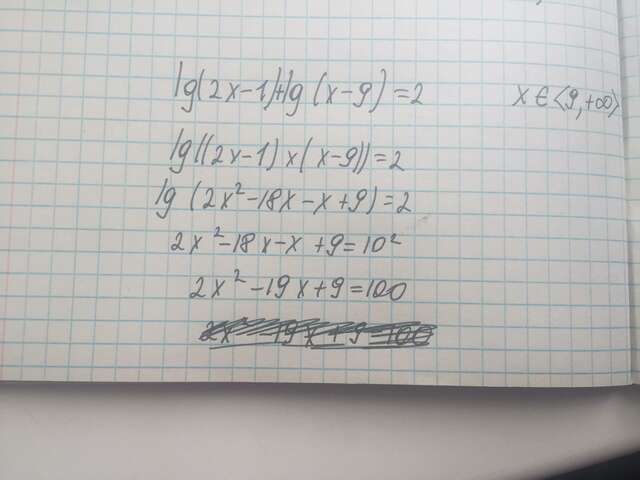 lg(2x-1)+lg(x-9)=2 x∈<9,+∞>
lg((2x-1)x(x-9))=2
lg(2x²-18x-x+9)=2
2x²-18x-x+9=10²
2x²-19x+9=100